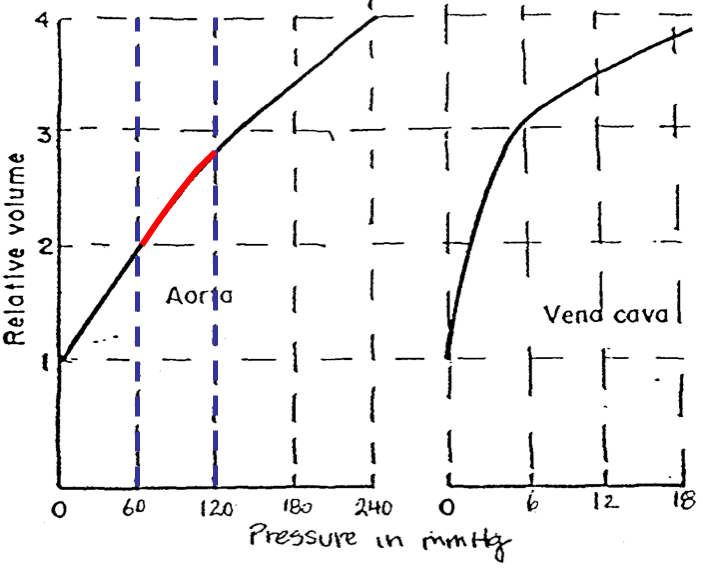 4
3
2
1
Relative volume
Aorta
Vena cava
0 60 120 180 240
0 6 12 18
Pressure in mmHg